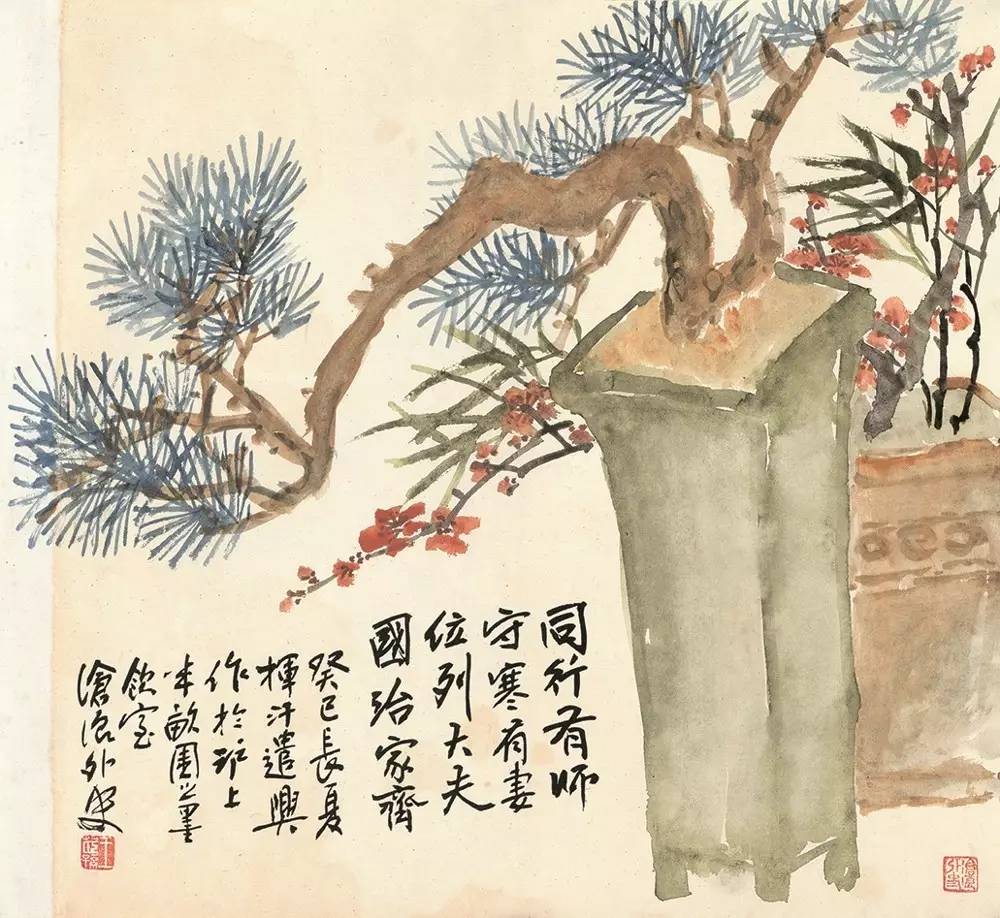 同行有师
守寒有妻
位列大夫
國治家齊
癸巳長夏
揮汗遣興
作於上
半畝園之墨
飲室
滄浪外史
滄浪外史